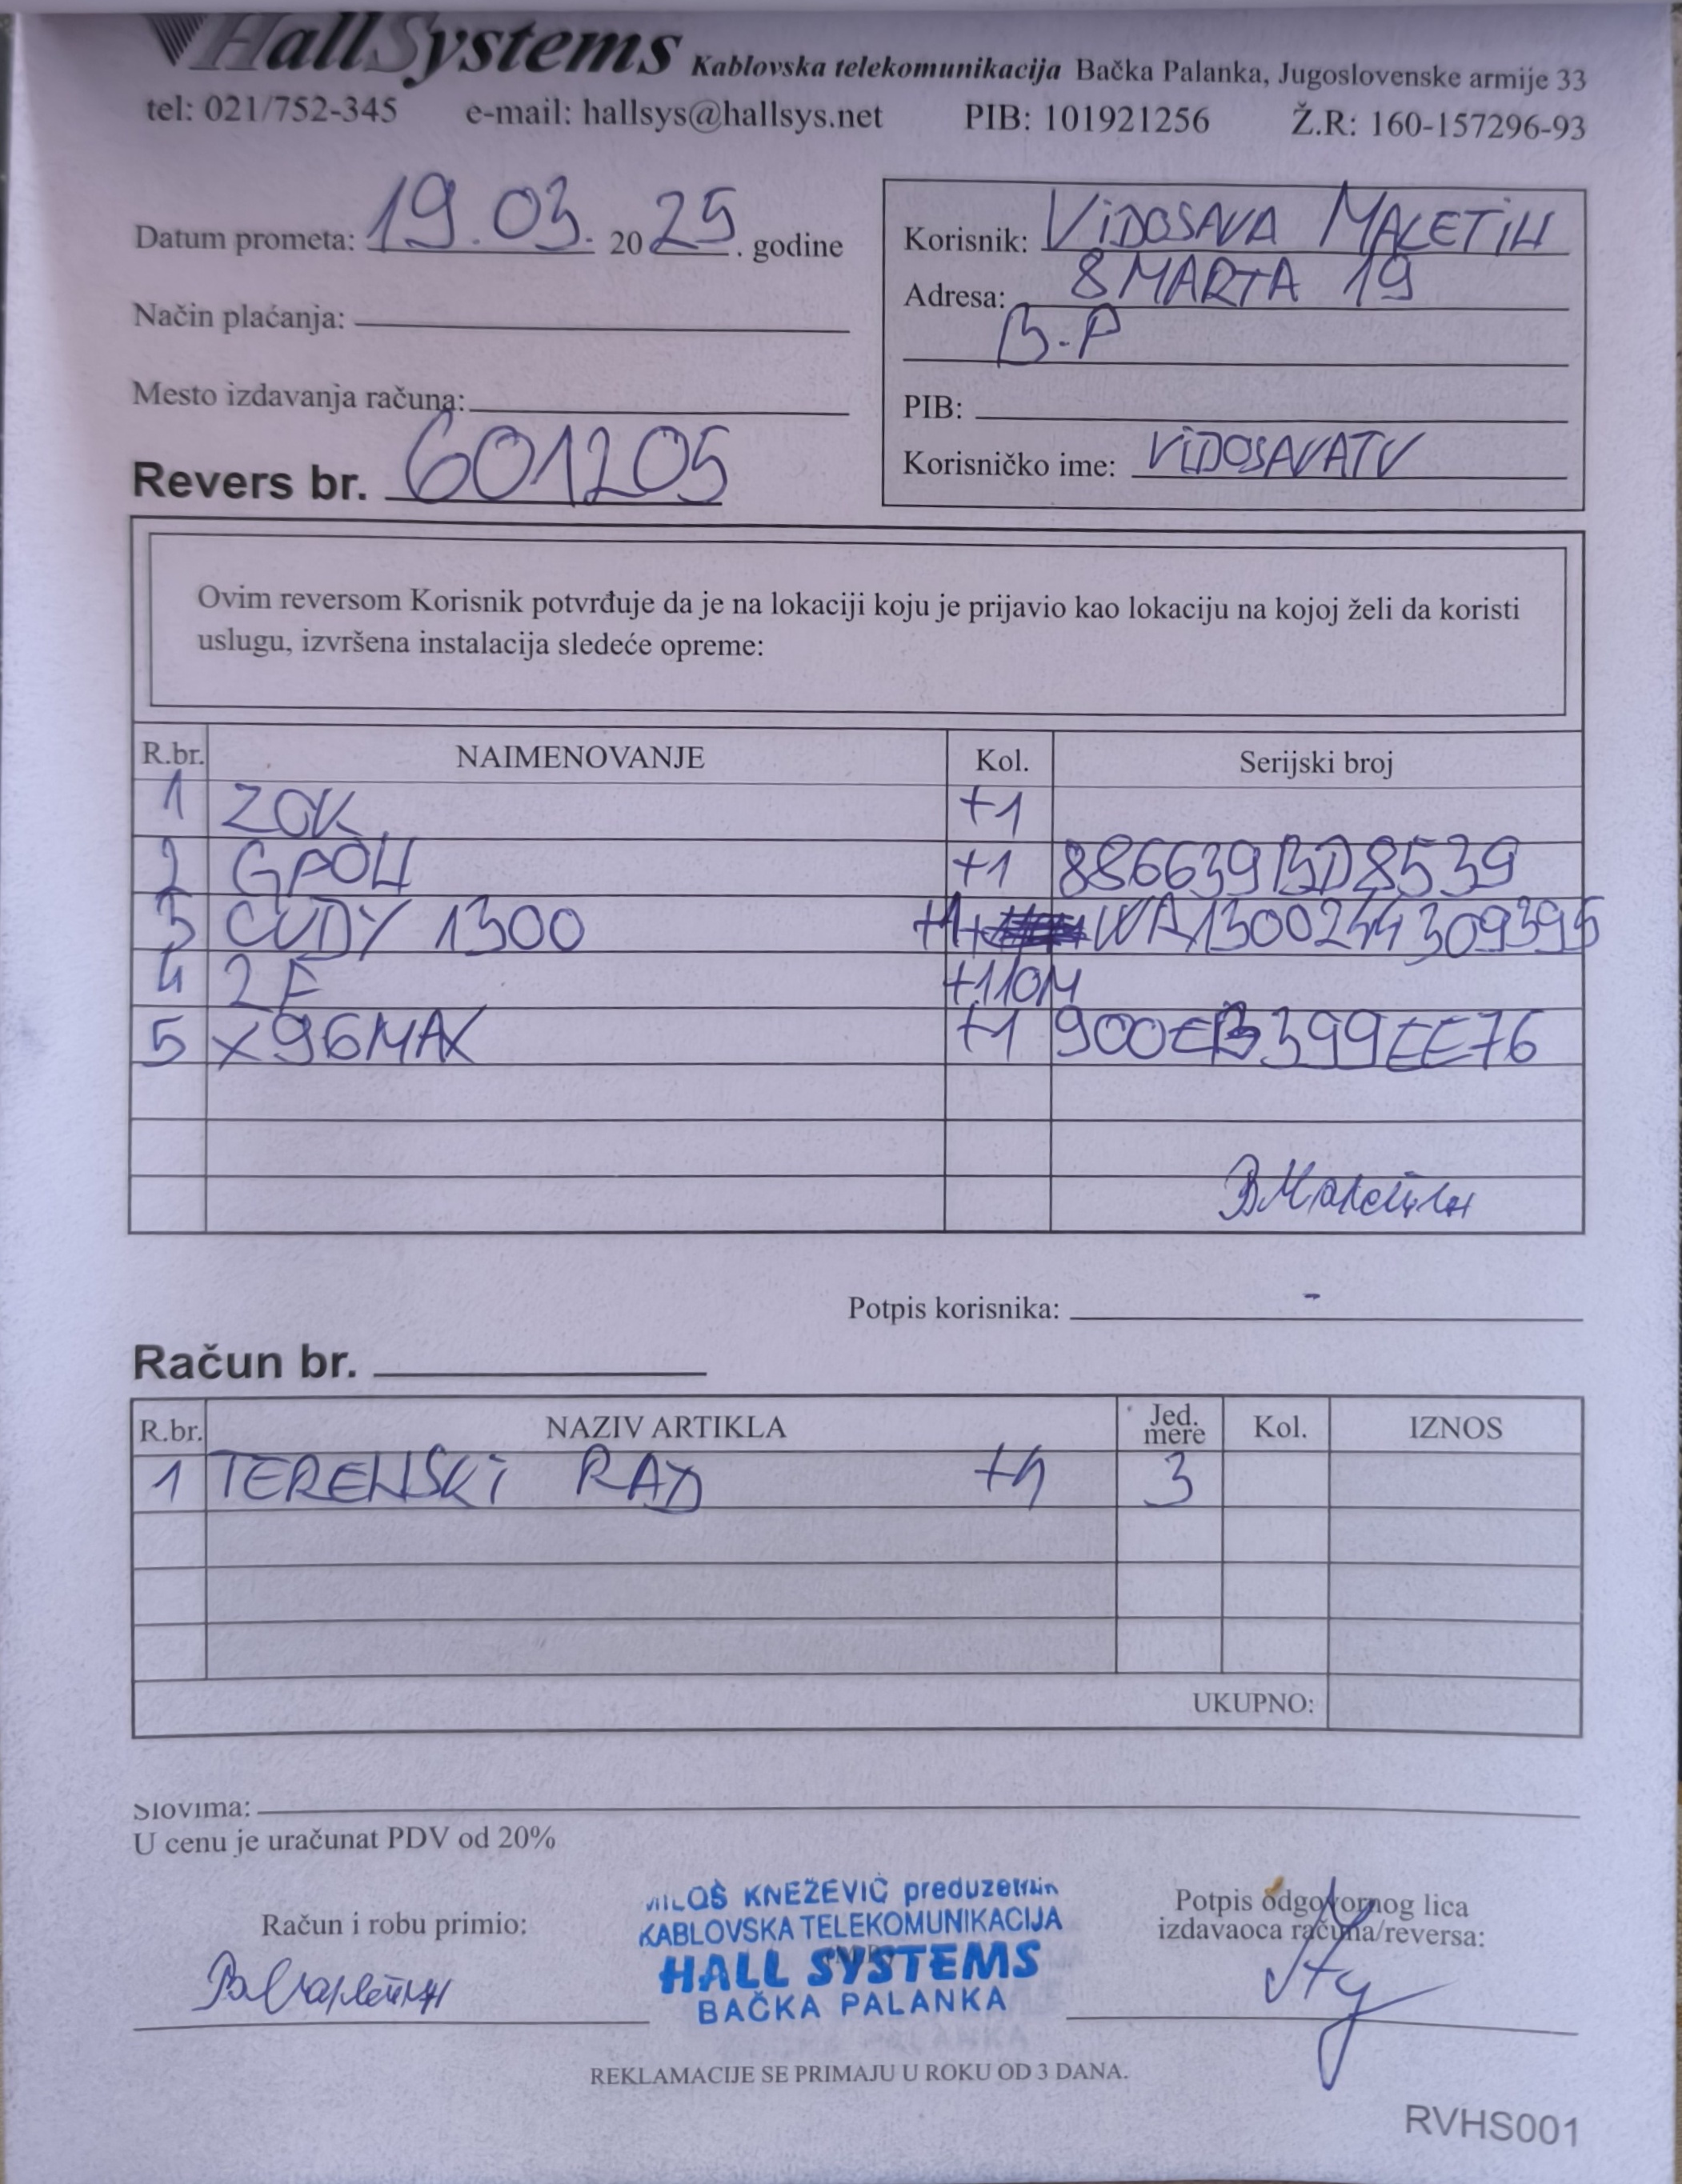 HallSystems Kablovska telekomunikacija Bačka Palanka, Jugoslovenske armije 33
tel: 021/752-345 e-mail: hallsys@hallsys.net PIB: 101921256 Ž.R: 160-157296-93
Datum prometa: 19.03. 2025. godine
Način plaćanja:
Mesto izdavanja računa:
Revers br. 601205
Korisnik: ViDOSAVA MALETiH
Adresa: 8 MARTA 19
B.P
PIB:
Korisničko ime: ViDOSAVATV
Ovim reversom Korisnik potvrđuje da je na lokaciji koju je prijavio kao lokaciju na kojoj želi da koristi
uslugu, izvršena instalacija sledeće opreme:
R.br. NAIMENOVANJE Kol. Serijski broj
1 ZOK +1
2 GPOH +1 886639BD8539
3 CUDY 1300 +1 WR1300244309395
4 2F +110M
5 X96MAX +1 900EB399EE76
Potpis korisnika: -
Račun br.
R.br. NAZIV ARTIKLA Jed. mere Kol. IZNOS
1 TERENSKi RAD +1 3
UKUPNO:
Slovima:
U cenu je uračunat PDV od 20%
Račun i robu primio:
MILOŠ KNEŽEVIĆ preduzetnik
KABLOVSKA TELEKOMUNIKACIJA
HALL SYSTEMS
BAČKA PALANKA
Potpis odgovornog lica
izdavaoca računa/reversa:
REKLAMACIJE SE PRIMAJU U ROKU OD 3 DANA.
RVHS001